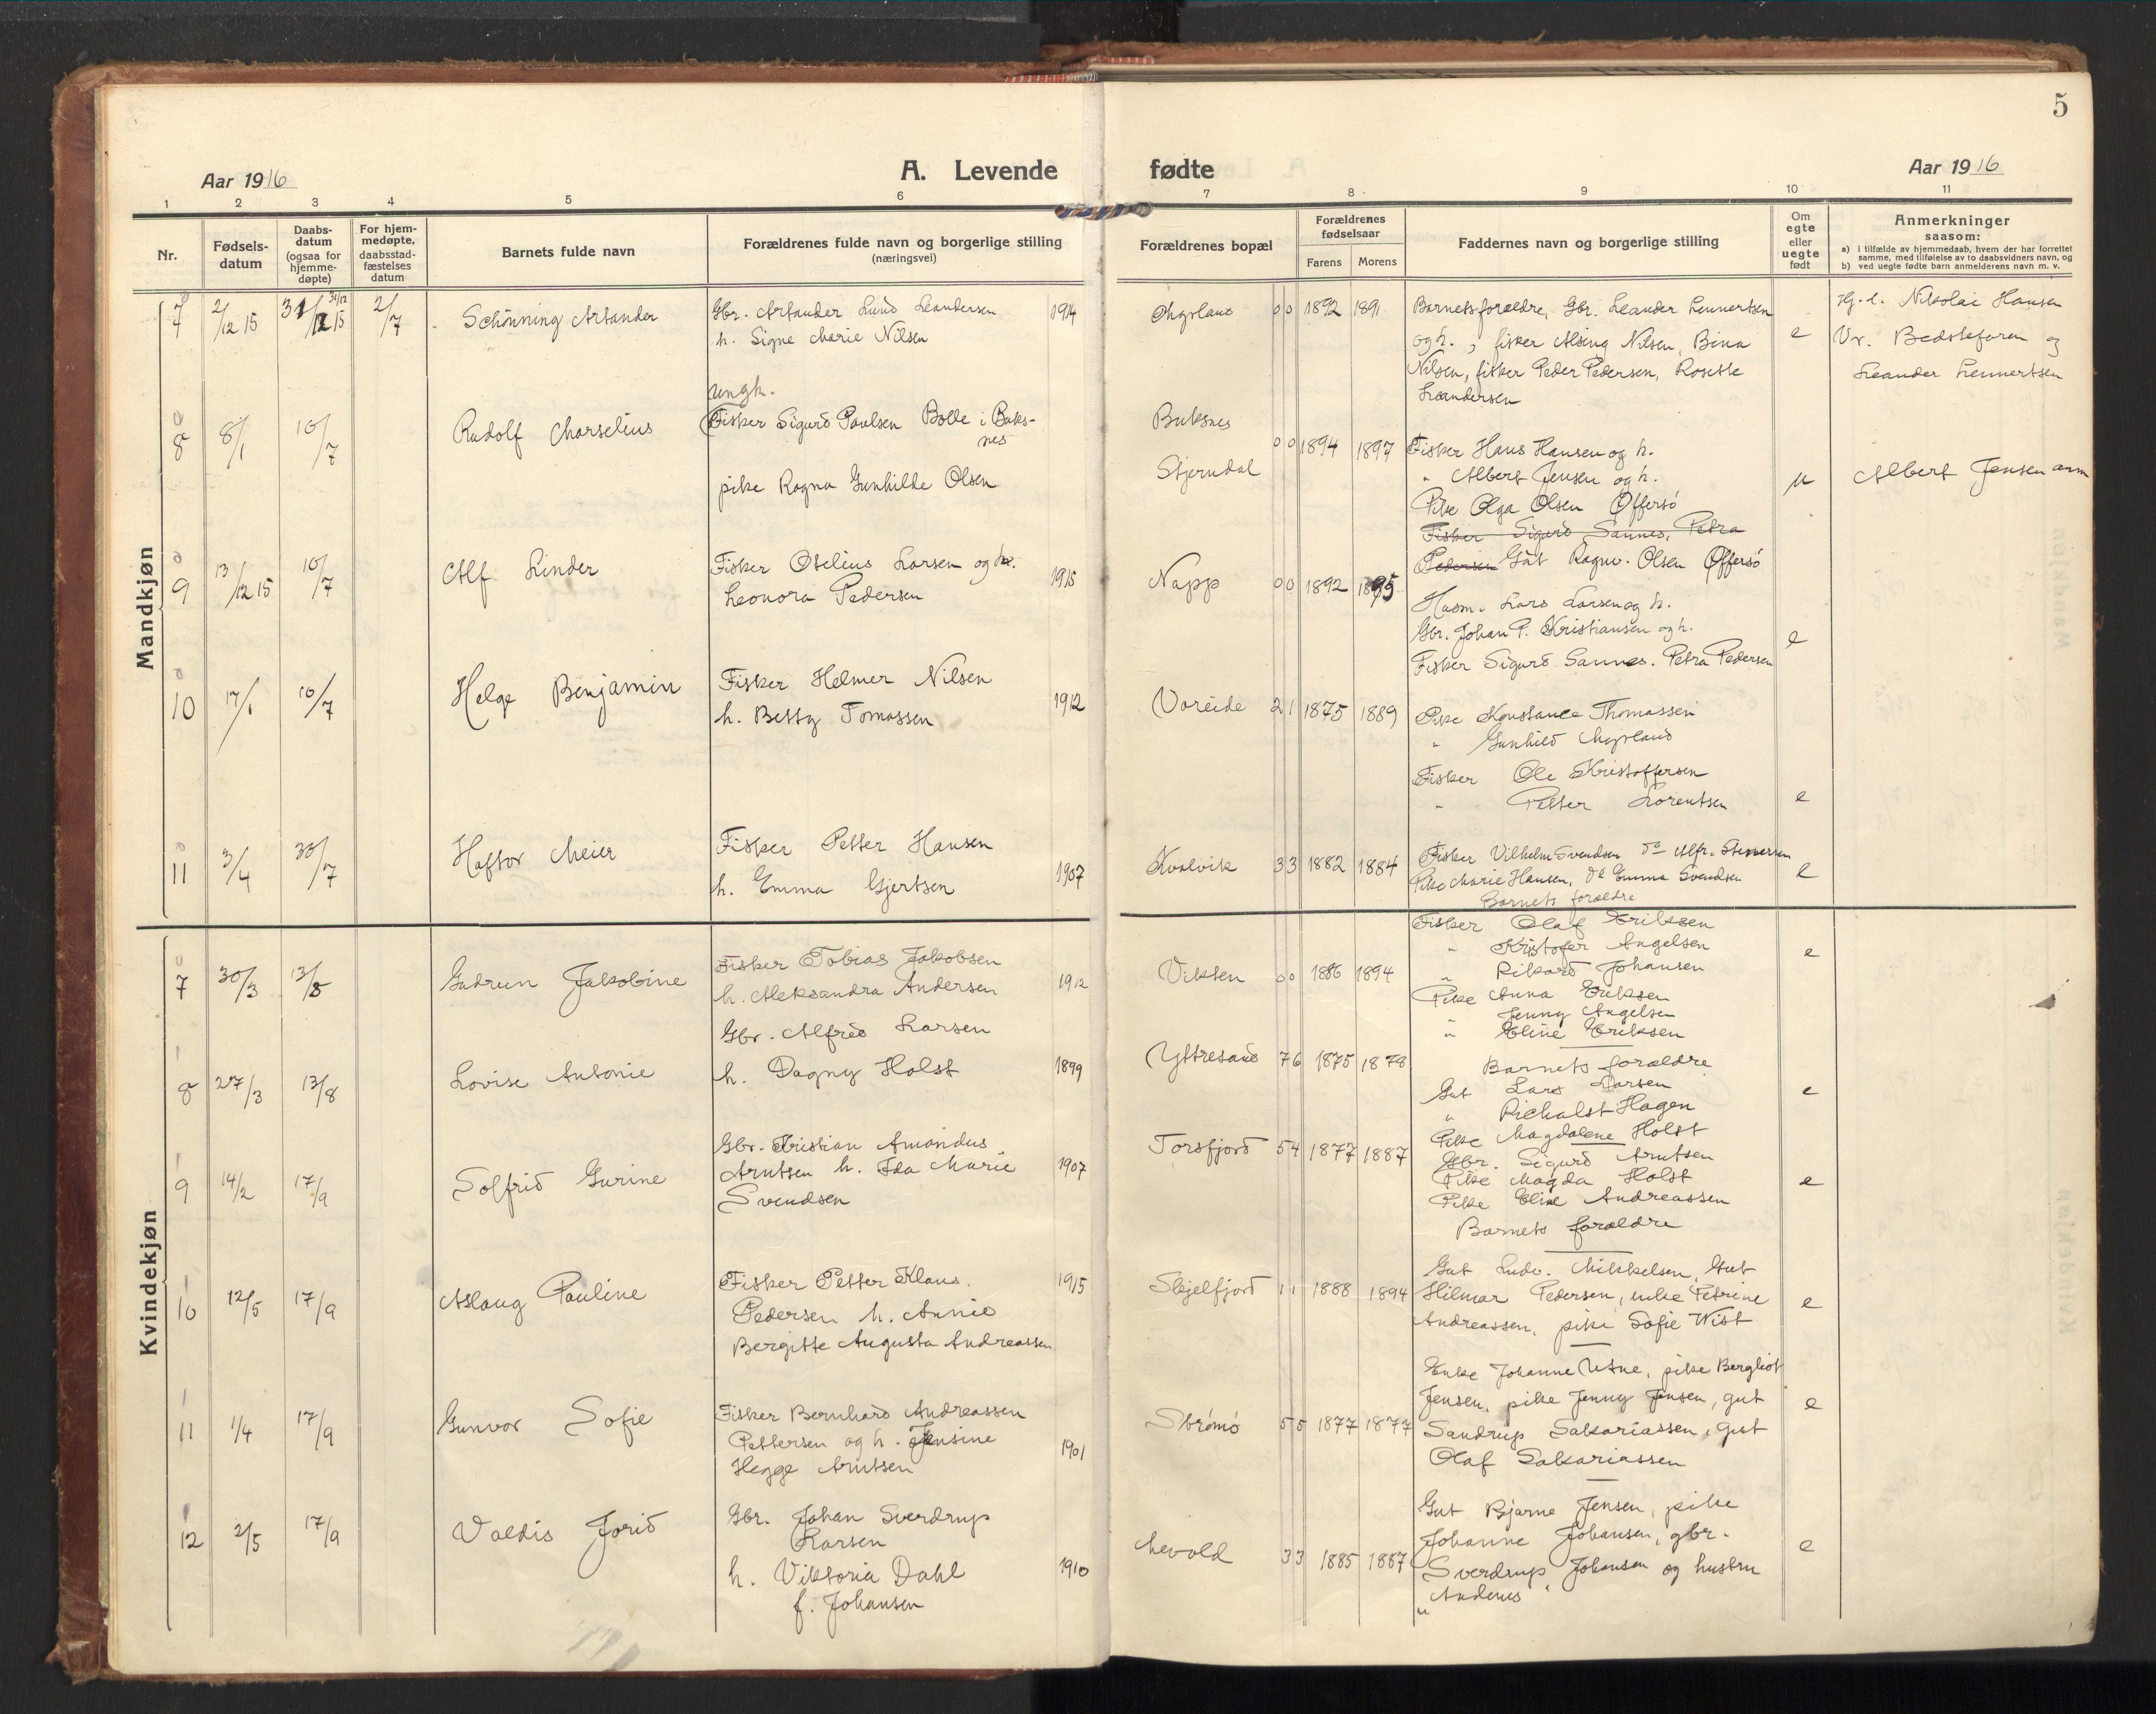 5
Aar 1916
A. Levende
fødte
Aar 1916
1 2 3 4 5 6 7 8 9 10 11
Nr.
Fødsels-
datum
Daabs-
datum
(ogsaa for
hjemme-
døpte)
For hjem-
medøpte,
daabsstad-
fæstelses
datum
Barnets fulde navn
Forældrenes fulde navn og borgerlige stilling
(næringsvei)
Forældrenes bopæl
Forældrenes
fødselsaar
Farens Morens
Faddernes navn og borgerlige stilling
Om
egte
eller
uegte
født
Anmerkninger
saasom:
a) i tilfælde av hjemmedaab, hvem der har forrettet
samme, med tilføielse av to daabsvidners navn, og
b) ved uegte fødte barn anmelderens navn m. v.
Mandkjøn
7 2/12 15 31/12 15 2/7 Schönning Artander
Gbr. Artander Lund Leandersen 1914
h. Signe Marie Nilsen
00 1892 1891
Barnets forældre, Gbr. Leander Lennertsen
og h., fisker Alsing Nilsen, Bina
Nilsen, fisker Peder Pedersen, Rosette
Leandersen
e
Hj. d. Nikolai Hansen
Vv. Bedstefaren og
Leander Lennertsen
8 8/1 16/7 Rudolf Marselius
ungk.
Fisker Sigurd Paulsen Bolle i Buks-
nes
pike Ragna Gunhilde Olsen
Buksnes
Stjerndal
00 1894 1897
Fisker Hans Hansen og h.
" Albert Jensen og h.
Pike Olga Olsen Offersö
Fisker Sigurd Sannes, Petra
Pedersen Gut Ragnv. Olsen Offersö
u
Albert Jensen anm
9 13/12 15 16/7 Alf Linder
Fisker Otelius Larsen og h. 1915
Leonora Pedersen
Napp 00 1892 1895
Husm. Lars Larsen og h.
Gbr. Johan P. Kristiansen og h.
Fisker Sigurd Sannes. Petra Pedersen
e
10 17/1 16/7 Helge Benjamin
Fisker Helmer Nilsen 1912
h. Betty Tomassen
Voreide 21 1875 1889
Pike Konstance Thomassen
" Gunhild Myrland
Fisker Ole Kristoffersen
" Petter Lorentsen
e
11 3/4 30/7 Haftor Meier
Fisker Petter Hansen 1907
h. Emma Gjertsen
Kvalvik 33 1882 1884
Fisker Vilhelm Svendsen do Alfr.
Pike Marie Hansen, do Emma Svendsen
Barnets forældre
e
Kvindekjøn
7 30/3 13/8 Gudrun Jakobine
Fisker Tobias Jakobsen 1912
h. Aleksandra Andersen
Vikten 00 1886 1894
Fisker Olaf Eriksen
" Kristofer Angelsen
" Rikard Johansen
Pike Anna Eriksen
" Jenny Angelsen
" Eline Eriksen
e
8 27/3 13/8 Lovise Antonie
Gbr. Alfred Larsen
h. Dagny Holst 1899
Yttresand 76 1875 1878
Barnets forældre
Gut Lars Larsen
" Richalst Hagen
Pike Magdalene Holst
e
9 14/2 17/9 Solfrid Gurine
Gbr. Kristian Amandus
Arntsen h. Ida Marie 1907
Svendsen
Torsfjord 54 1877 1887
Gbr. Sigurd Arntsen
Pike Magda Holst
Pike Eline Andreassen
Barnets forældre
e
10 12/5 17/9 Aslaug Pauline
Fisker Petter Klaus. 1915
Pedersen h. Annie
Bergitte Augusta Andreassen
Skjelfjord 11 1888 1894
Gut Ludv. Mikkelsen, Gut
Hilmar Pedersen, enke Petrine
Andreassen, pike Sofie Wist
e
11 1/4 17/9 Gunvor Sofie
Fisker Bernhard Andreassen
Pettersen og h. Jensine 1901
Hegge Arntsen
Strömö 55 1877 1877
Enke Johanne Utne, pike Bergliot
Jensen, pike Jenny Jensen, gut
Sandrup Sakariassen, gut
Olaf Sakariassen
e
12 2/5 17/9 Valdis Jorid
Gbr. Johan Sverdrup
Larsen
h. Viktoria Dahl 1910
f. Johansen
Mevold 33 1885 1887
Gut Bjarne Jensen, pike
Johanne Johansen, gbr.
Sverdrup Johansen og hustru
"
e